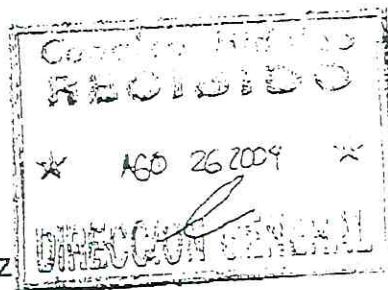 RECIBIDO
AGO 26 2009
Z DIRECCION GENERAL